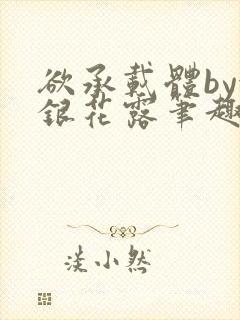 欲承載體by
銀花露筆趣
淡小然